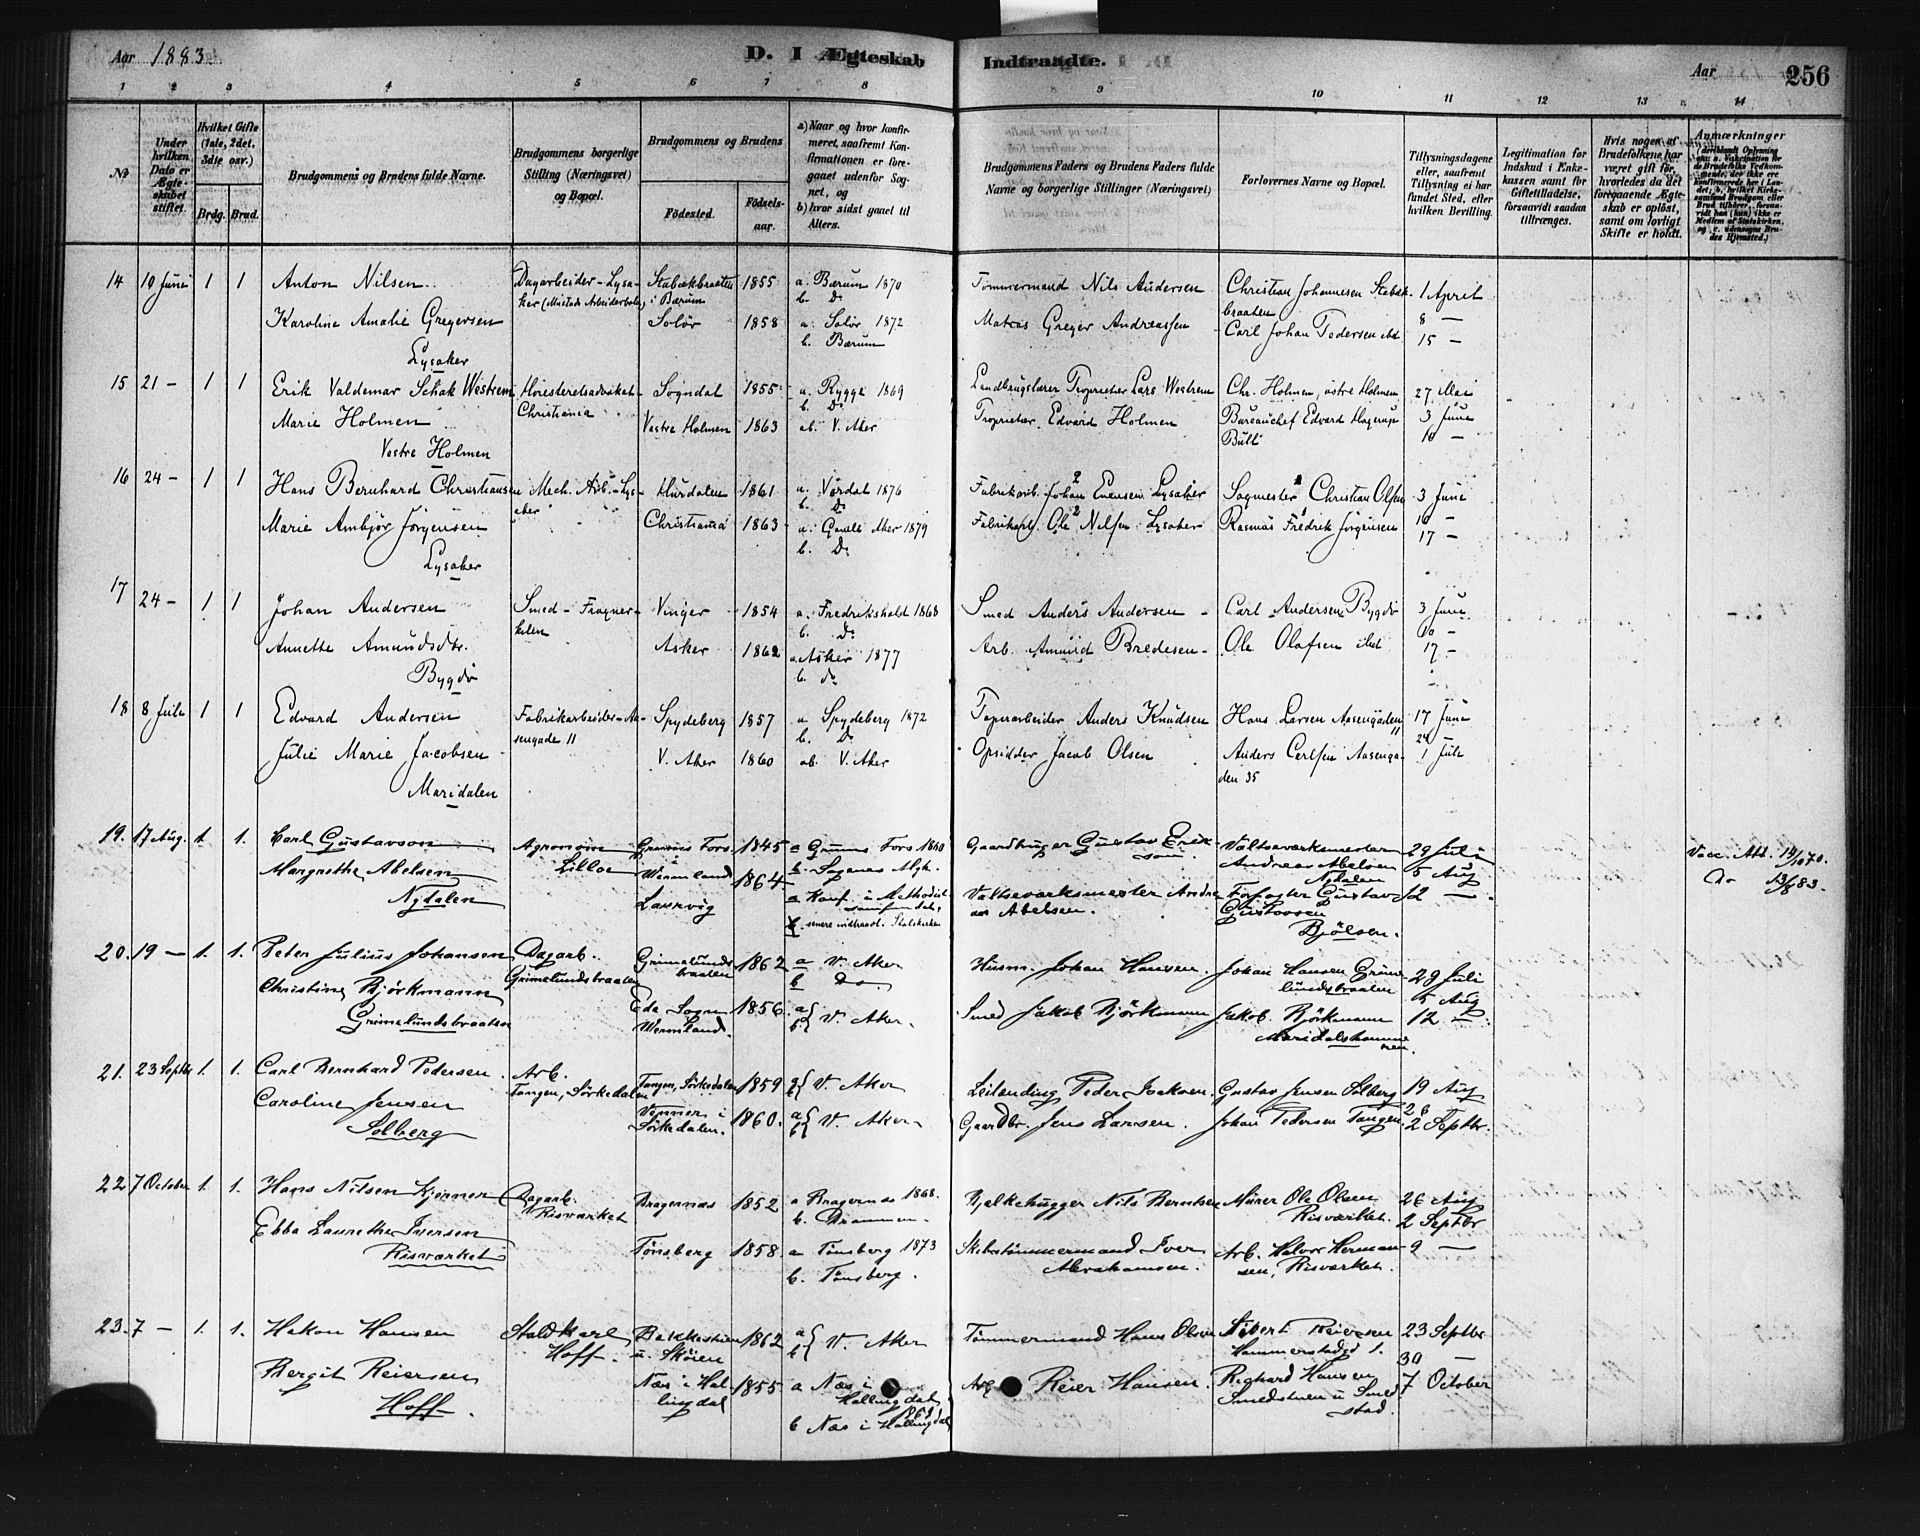 Aar 1883.
D. I Ægteskab Indtraadte.
Aar 256
1 2 3 4 5 6 7 8 9 10 11 12 13 14
No
Under hvilken Dato er Ægteskabet stiftet.
Hvilket Gifte (1ste, 2det, 3die osv.)
Brdg. Brud.
Brudgommens og Brudens fulde Navne.
Brudgommens borgerlige Stilling (Næringsvei) og Bopæl.
Brudgommens og Brudens
Fødested.
Fødselsaar.
a) Naar og hvor konfirmeret, saafremt Konfirmationen er foregaaet udenfor Sognet, og
b) hvor sidst gaaet til Alters.
Brudgommens Faders og Brudens Faders fulde Navne og borgerlige Stillinger (Næringsvei)
Forlovernes Navne og Bopæl.
Tillysningsdagene eller, saafremt Tillysning ei har fundet Sted, efter hvilken Bevilling.
Legitimation for Indskud i Enkekassen samt for Giftettilladelse, forsaavidt saadan tiltrænges.
Hvis nogen af Brudefolkene har været gift før, hvorledes da det foregaaende Ægteskab er opløst, samt om lovligt Skifte er holdt.
Anmærkninger
14 10 Juni 1 1 Anton Nilsen Dagarbeider - Lysaker Stabækbraaten i Bærum 1855 a. Bærum 1870 b. Do Tømmermand Nils Andersen Christian Johannesen Stabækbraaten 1 April
Karoline Amalie Gregersen Solør 1858 a. Solør 1872 b. Bærum Matros Greger Andreassen Carl Johan Pedersen ibd 8 - 15 -
Lysaker
15 21 - 1 1 Erik Valdemar Schak Westrem Høiesteretsadvokat Christiania Sogndal 1855 a. Rygge 1869 b. Do Landbrugslærer Proprietær Lars Westrem Chr. Holmen, østre Holmen 27 Mai
Marie Holmen Vestre Holmen 1863 ab. V. Aker Proprietær Edvard Holmen Bureauchef Edvard Hagerup Bull 3 Juni 10 -
Vestre Holmen
16 24 - 1 1 Hans Bernhard Christiansen Mech. Arb. - Lysaker Hurdalen 1861 a. 1876 b. Do Fabrikarb. Johan Evensen Lysaker Sagmester Christian Olsen 3 Juni
Marie Ambjør Jørgensen Christiania 1863 a. Gamle Aker 1879 b. Do Fabrikarb. Ole Nilsen Lysaker Rasmus Fredrik Jørgensen 10 - 17 -
Lysaker
17 24 - 1 1 Johan Andersen Smed - Frognerkilen Vinger 1854 a. Fredrikshald 1868 b. Do Smed Anders Andersen Carl Andersen Bygdø 3 Juni
Annette Amundsdtr. Asker 1862 a Asker 1877 b. do Arb. Amund Bredesen Ole Olafsen ibd 10 - 17 -
Bygdø
18 8 Juli 1 1 Edvard Andersen Fabrikarbeider - Aasengade 11 Spydeberg 1857 a. Spydeberg 1872 b. Do Anders Knudsen Hans Larsen Aasengaden 11 17 Juni
Julie Marie Jacobsen V. Aker 1860 ab. V. Aker Opsidder Jacob Olsen Anders Carlsen Aasengaden 35 24 - 1 Juli
Maridalen
19. 17 Aug. 1. 1. Carl Gustavson Agronom Lilloe Grums Fors. i Wermland 1845 a Grums Fors 1860 b. Sagenes Mgh. Gaardbruger Gustav Erikson Valtseværksmester Andreas Abelsen Nydalen 29 Juli 5 Aug Vacc. Att. 14/10 70.
Margrethe Abelsen Laurvig 1864 a Konf. i Methodistsamfundet, b. senere indtraadt i Statskirken Valtseværksmester Andreas Abelsen. Forfogter Gustav Gustavsen Bjølsen. 12 - Do 13/8 83.
Nydalen
20. 19 - 1. 1. Peter Julius Johansen Dagarb. Grimelundsbraaten Grimelundsbraaten 1862 a V. Aker b Do Husm. Johan Hansen. Johan Hansen Grimelundsbraaten 29 Juli
Christine Bjørkmann Eda Sogn Wermland 1856. a b } V. Aker. Smed Jakob Bjørkmann Jakob Bjørkmann Maridalshammeren. 5 Aug 12 -
Grimelundsbraaten
21. 23 Septbr 1. 1. Carl Bernhard Pedersen. Arb. Tangen, Sørkedalen Tangen, Sørkedalen 1859 a b } V. Aker Leilending Peder Gustav Jensen Solberg 19 Aug
Caroline Jensen Venner i Sørkedalen. 1860. a b } V. Aker Gaardbr. Jens Larsen. Johan Pedersen Tangen 26 2 Septbr.
Solberg
22 7 October 1. 1. Hans Nilsen Kjerner Dagarb. Risværket Bragernæs 1852 a Bragernæs 1868. b. Drammen. Bjelkehugger Nils Berntsen Murer Ole Olsen Risværket. 26 Aug 2 Septbr
Ebba Laurethe Iversen Tønsberg 1858. a Tønsberg 1873 b. Tønsberg. Skibstømmermand Iver Abrahamsen. Arb. Halvor Hermansen, Risværket. 9 -
Risværket
23. 7 - 1. 1. Hakon Hansen Staldkarl Hoff. Bakkestuen u. Skøien 1862 a b } V. Aker Tømmermand Hans Olsen Sibert Reiersen Hammerstadgd 1. 23 Septbr 30 -
Bergit Reiersen Næs i Hallingdal 1855 a Næs i Hallingdal b Næs i Hallingdal Arb Reier Hansen. Richard Hansen Smedstuen u Smedstad. 7 October
Hoff.